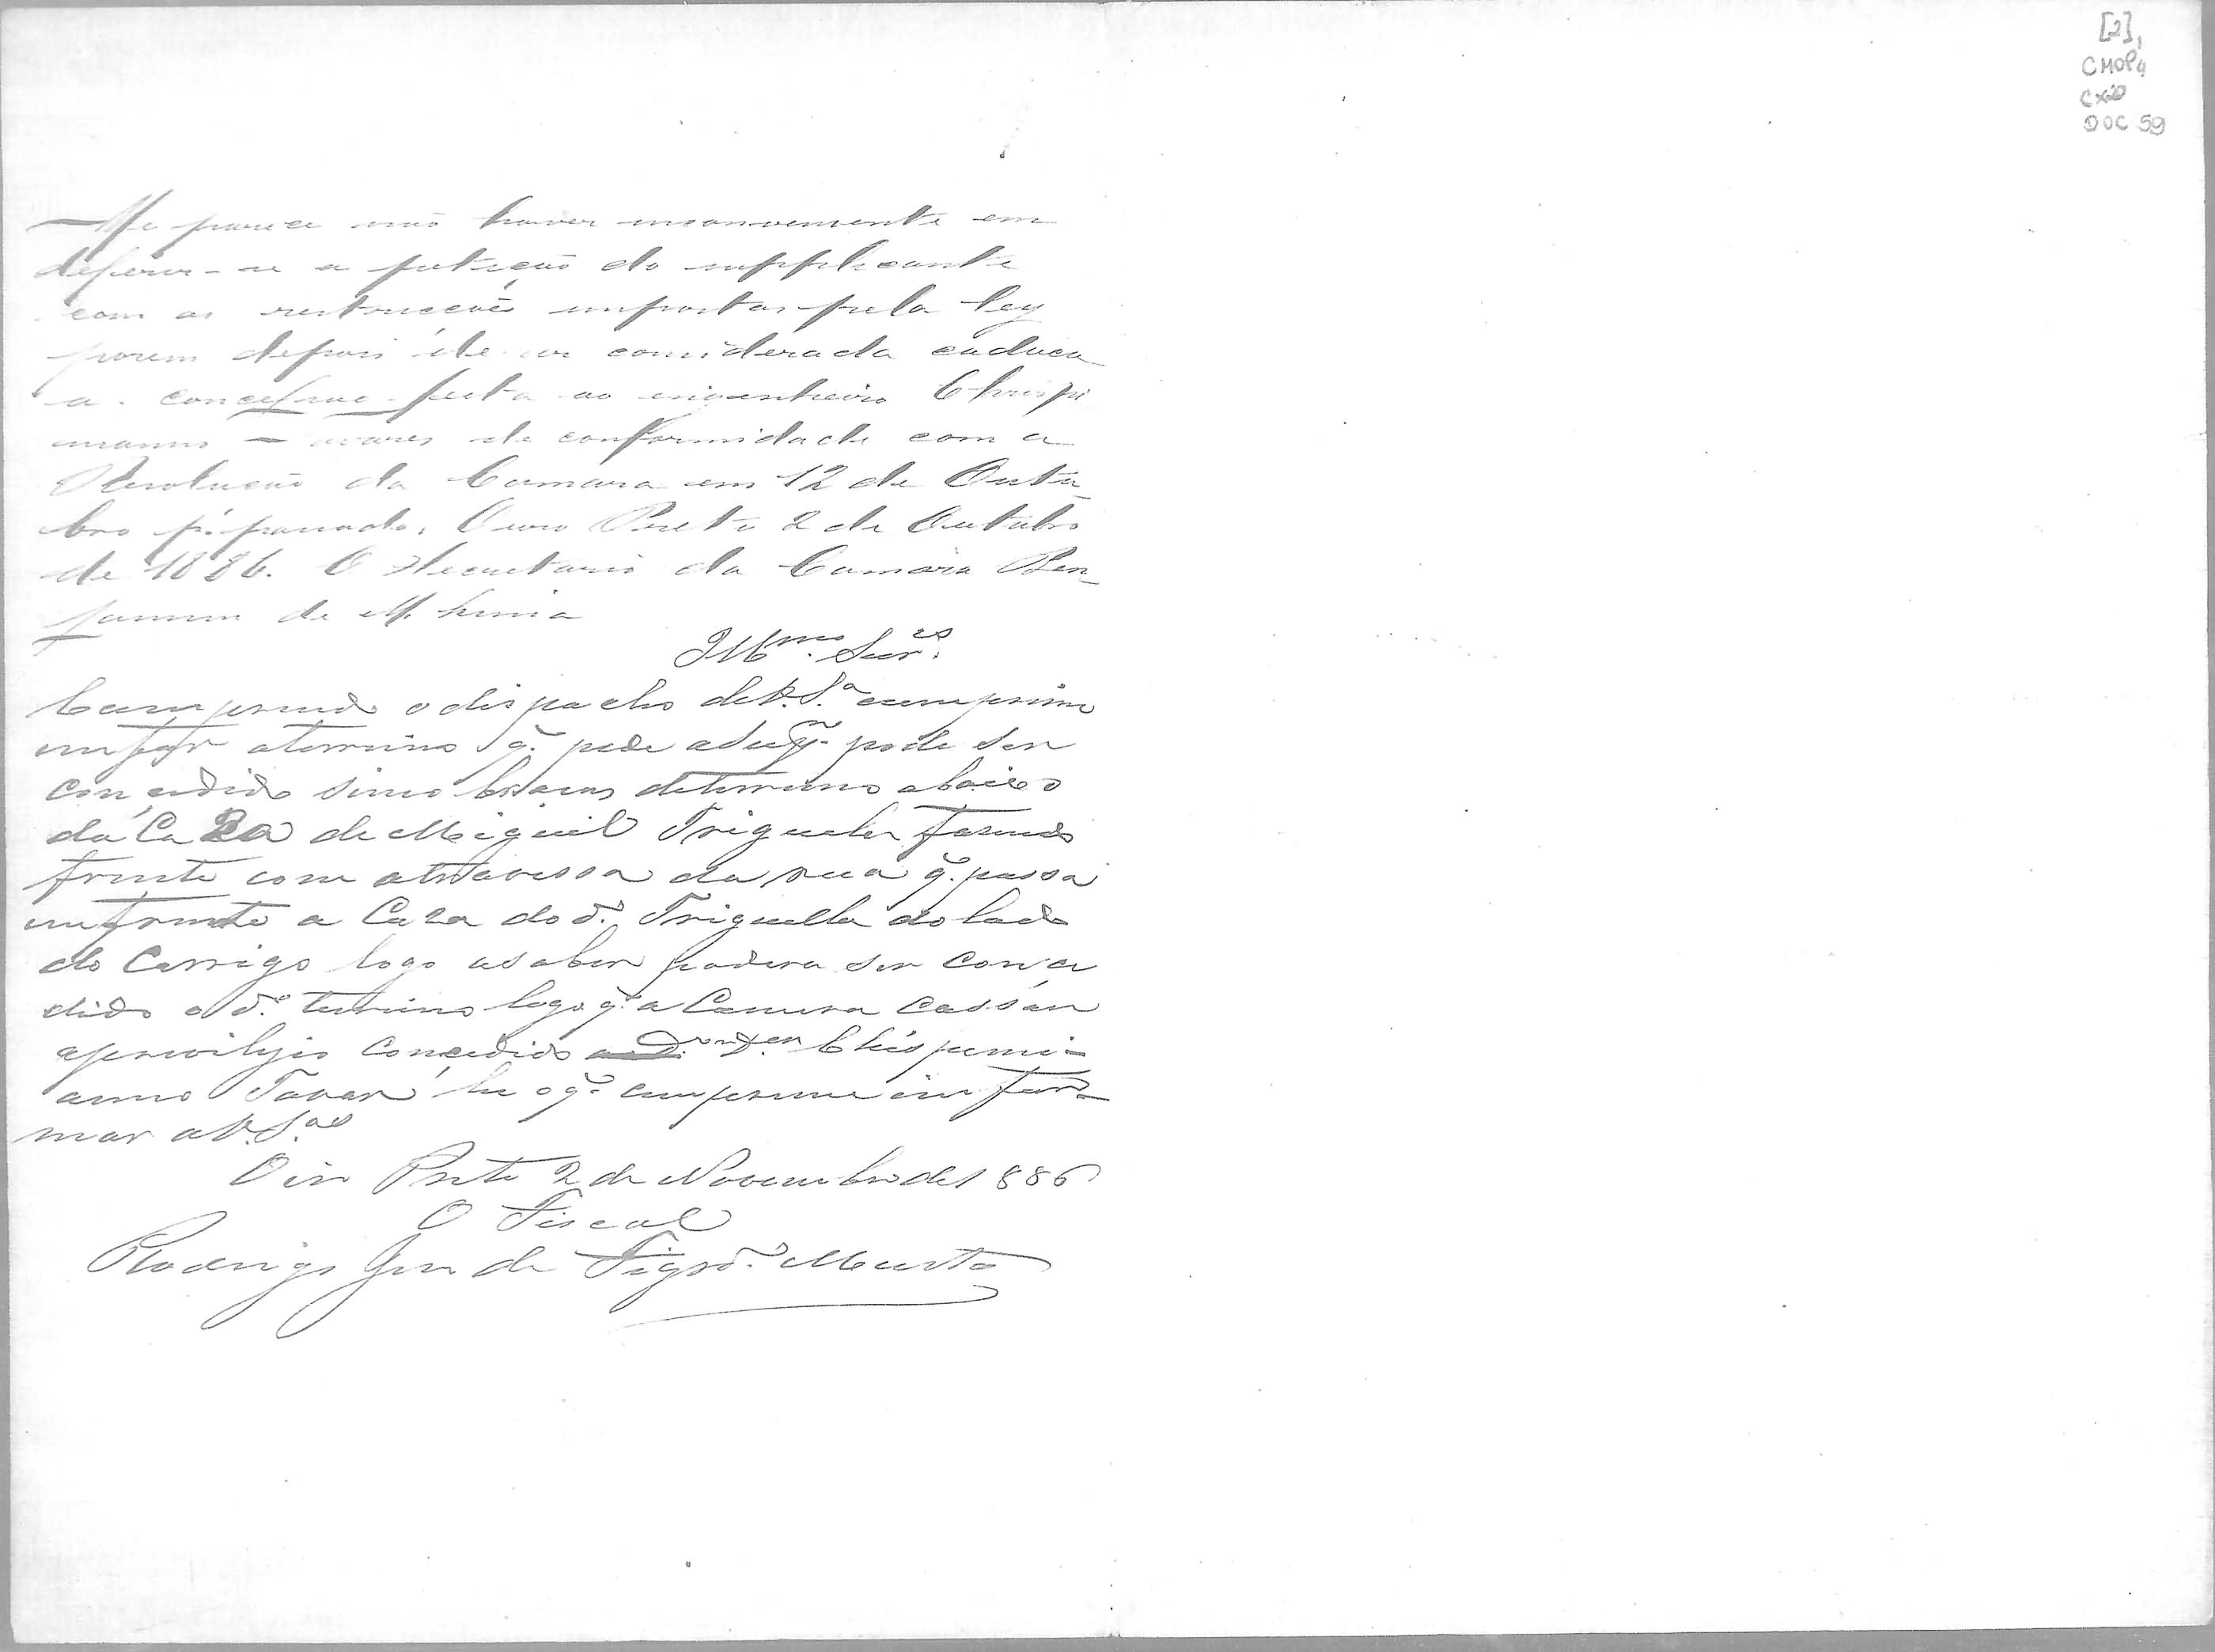 [2],
CMOP4
Cx20
DOC 59
Me parece não haver inconveniente em
deferir-se a petição do supplicante
com as restricções impostas pela ley
porem depois de ser considerada caduca
a concessão feita ao engenheiro Chrispi
niano Tavares de conformidade com a
Resolução da Camara em 12 de Outu-
bro p. passado. Ouro Preto 2 de Outubro
de 1886. O Secretario da Camara Ben-
jamim de M.
Illmos. Snres.
Comprindo o dispacho de V. S.a cumprime
imfor o terrino q. pede o Supp. pode ser
concedido sinco braças deterreno abaixo
da Caza de Miguel Triguelle fasendo
frente com atravessa da rua q. passa
emfrente a Caza do d.o Triguella do lado
do Corrigo logo asaber podera ser conce
dido o d.o terrino logo q. a Camera cassár
oprivilijio Concedido Chispini-
anno Tavar he o q. cumprime infor-
mar a V. S.as
Ouro Preto 2 de Novembro de 1886
O Fiscal
Rodrigo José de Figrd.o Murta